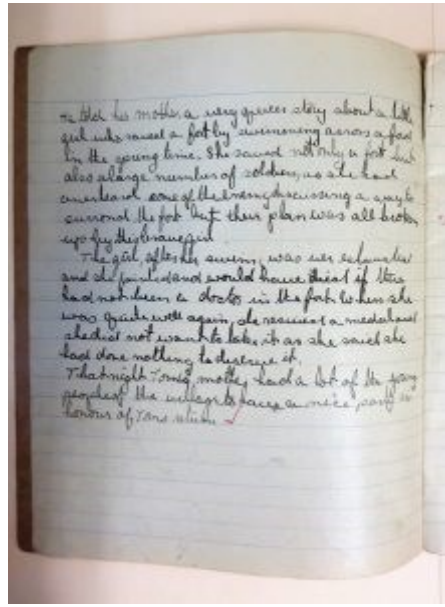 He told his mother a very queer story about a little
girl who saved a fort by swimming across a flood
in the spring time. She saved not only a fort but
also a large number of soldiers, as she had
overheard some of the enemy discussing a way to
surround the fort but their plan was all broken
up by this brave girl
The girl, after her swim, was very exhausted
and she fainted and would have died if there
had not been a doctor in the fort. When she
was quite well again, she received a medal and
she did not want to take it as she said she
had done nothing to deserve it.
That night Tom's mother had a lot of the young
people of the village to have a nice party in
honour of Toms return